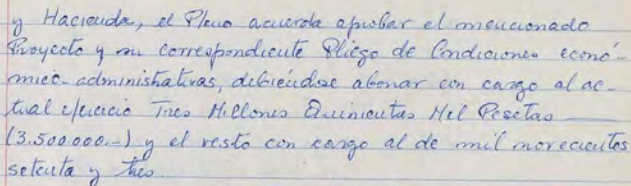 y Hacienda, el Pleno acuerda aprobar el mencionado
Proyecto y su correspondiente Pliego de Condiciones econó-
mico-administrativas, debiéndose abonar con cargo al ac-
tual ejercicio Tres Millones Quinientas Mil Pesetas
(3.500.000.-) y el resto con cargo al de mil novecientos
setenta y tres.